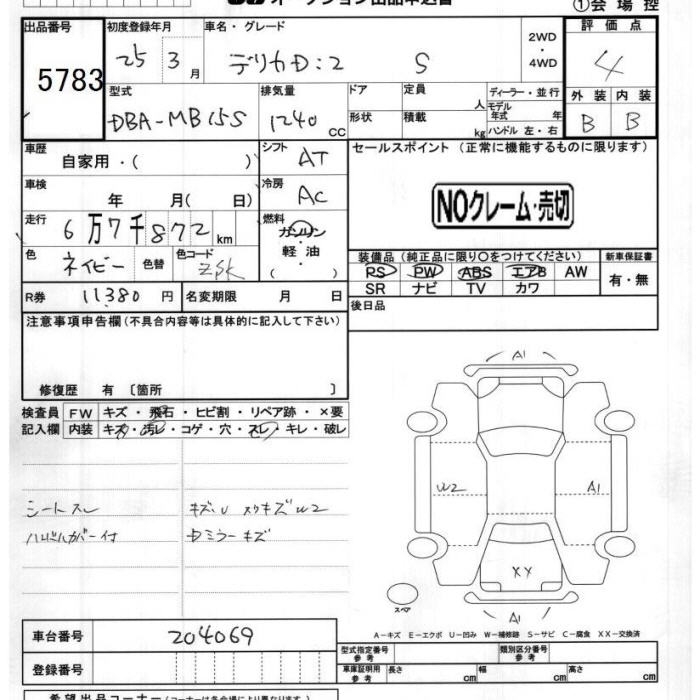 オークション出品申込書
①会場控
出品番号 初度登録年月 車名・グレード 2WD・4WD 評価点
5783 25 3月 デリカD:2 S 4
型式 排気量 ドア 定員 人 ディーラー・並行 外装 内装
DBA-MB15S 1240 CC 形状 積載 kg モデル年式 年 ハンドル 左・右 B B
車歴 自家用・( ) シフト AT セールスポイント (正常に機能するものに限ります)
車検 年 月( 日) 冷房 AC
NOクレーム・売切
走行 6万7千872km 燃料 ガソリン・軽油( )
色 ネイビー 色替 色コード ZSK
装備品(純正品に限り○をつけてください) 新車保証書
PS PW ABS エアB AW 有・無
SR ナビ TV カワ
R券 11,380円 名変期限 月 日 後日品
注意事項申告欄(不具合内容等は具体的に記入して下さい)
修復歴 有〔箇所 〕
検査員 FW キズ・飛石・ヒビ割・リペア跡・×要
記入欄 内装 キズ・汚レ・コゲ・穴・スレ・キレ・破レ
シートスレ
ハンドルカバー付
キズ・U
キズW2
ミラーキズ
A1
W2 A1
XX
スペア
A1
A-キズ E-エクボ U-凹み W-補修跡 S-サビ C-腐食 XX-交換済
車台番号 204069 型式指定番号 参考 類別区分番号 参考
登録番号 車庫証明用 参考 長さ cm 幅 cm 高さ cm
希望出品コーナー(コーナーは各会場により異なります)